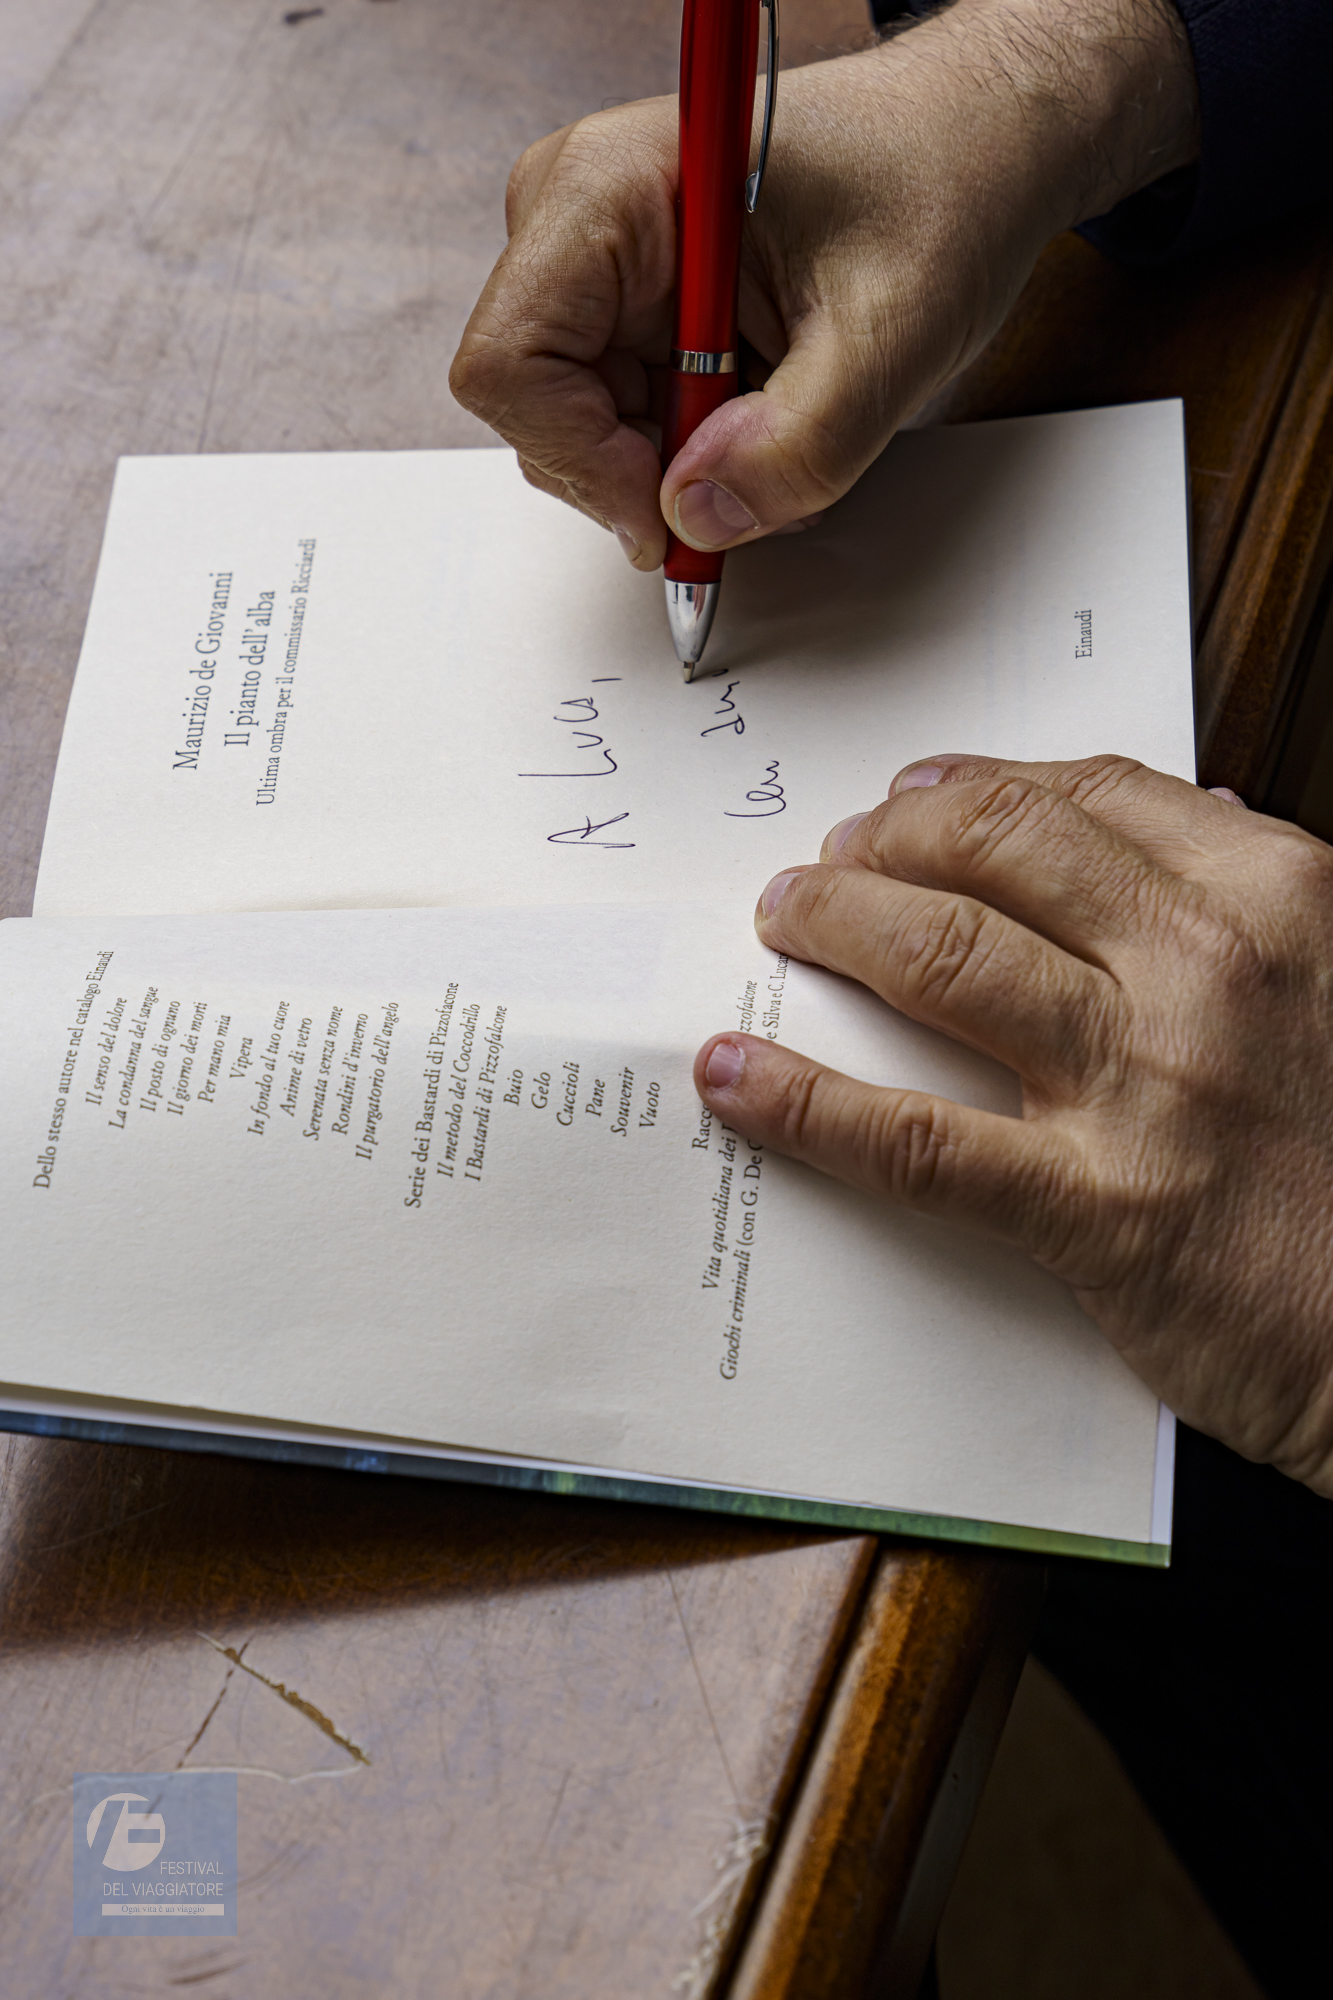 Maurizio de Giovanni
Il pianto dell'alba
Ultima ombra per il commissario Ricciardi
A Luca,
Einaudi
Dello stesso autore nel catalogo Einaudi
Il senso del dolore
La condanna del sangue
Il posto di ognuno
Il giorno dei morti
Per mano mia
Vipera
In fondo al tuo cuore
Anime di vetro
Serenata senza nome
Rondini d'inverno
Il purgatorio dell'angelo
Serie dei Bastardi di Pizzofalcone
Il metodo del Coccodrillo
I Bastardi di Pizzofalcone
Buio
Gelo
Cuccioli
Pane
Souvenir
Vuoto
Vita quotidiana dei
Giochi criminali (con G. De e Silva e C.
FESTIVAL
DEL VIAGGIATORE
Ogni vita è un viaggio